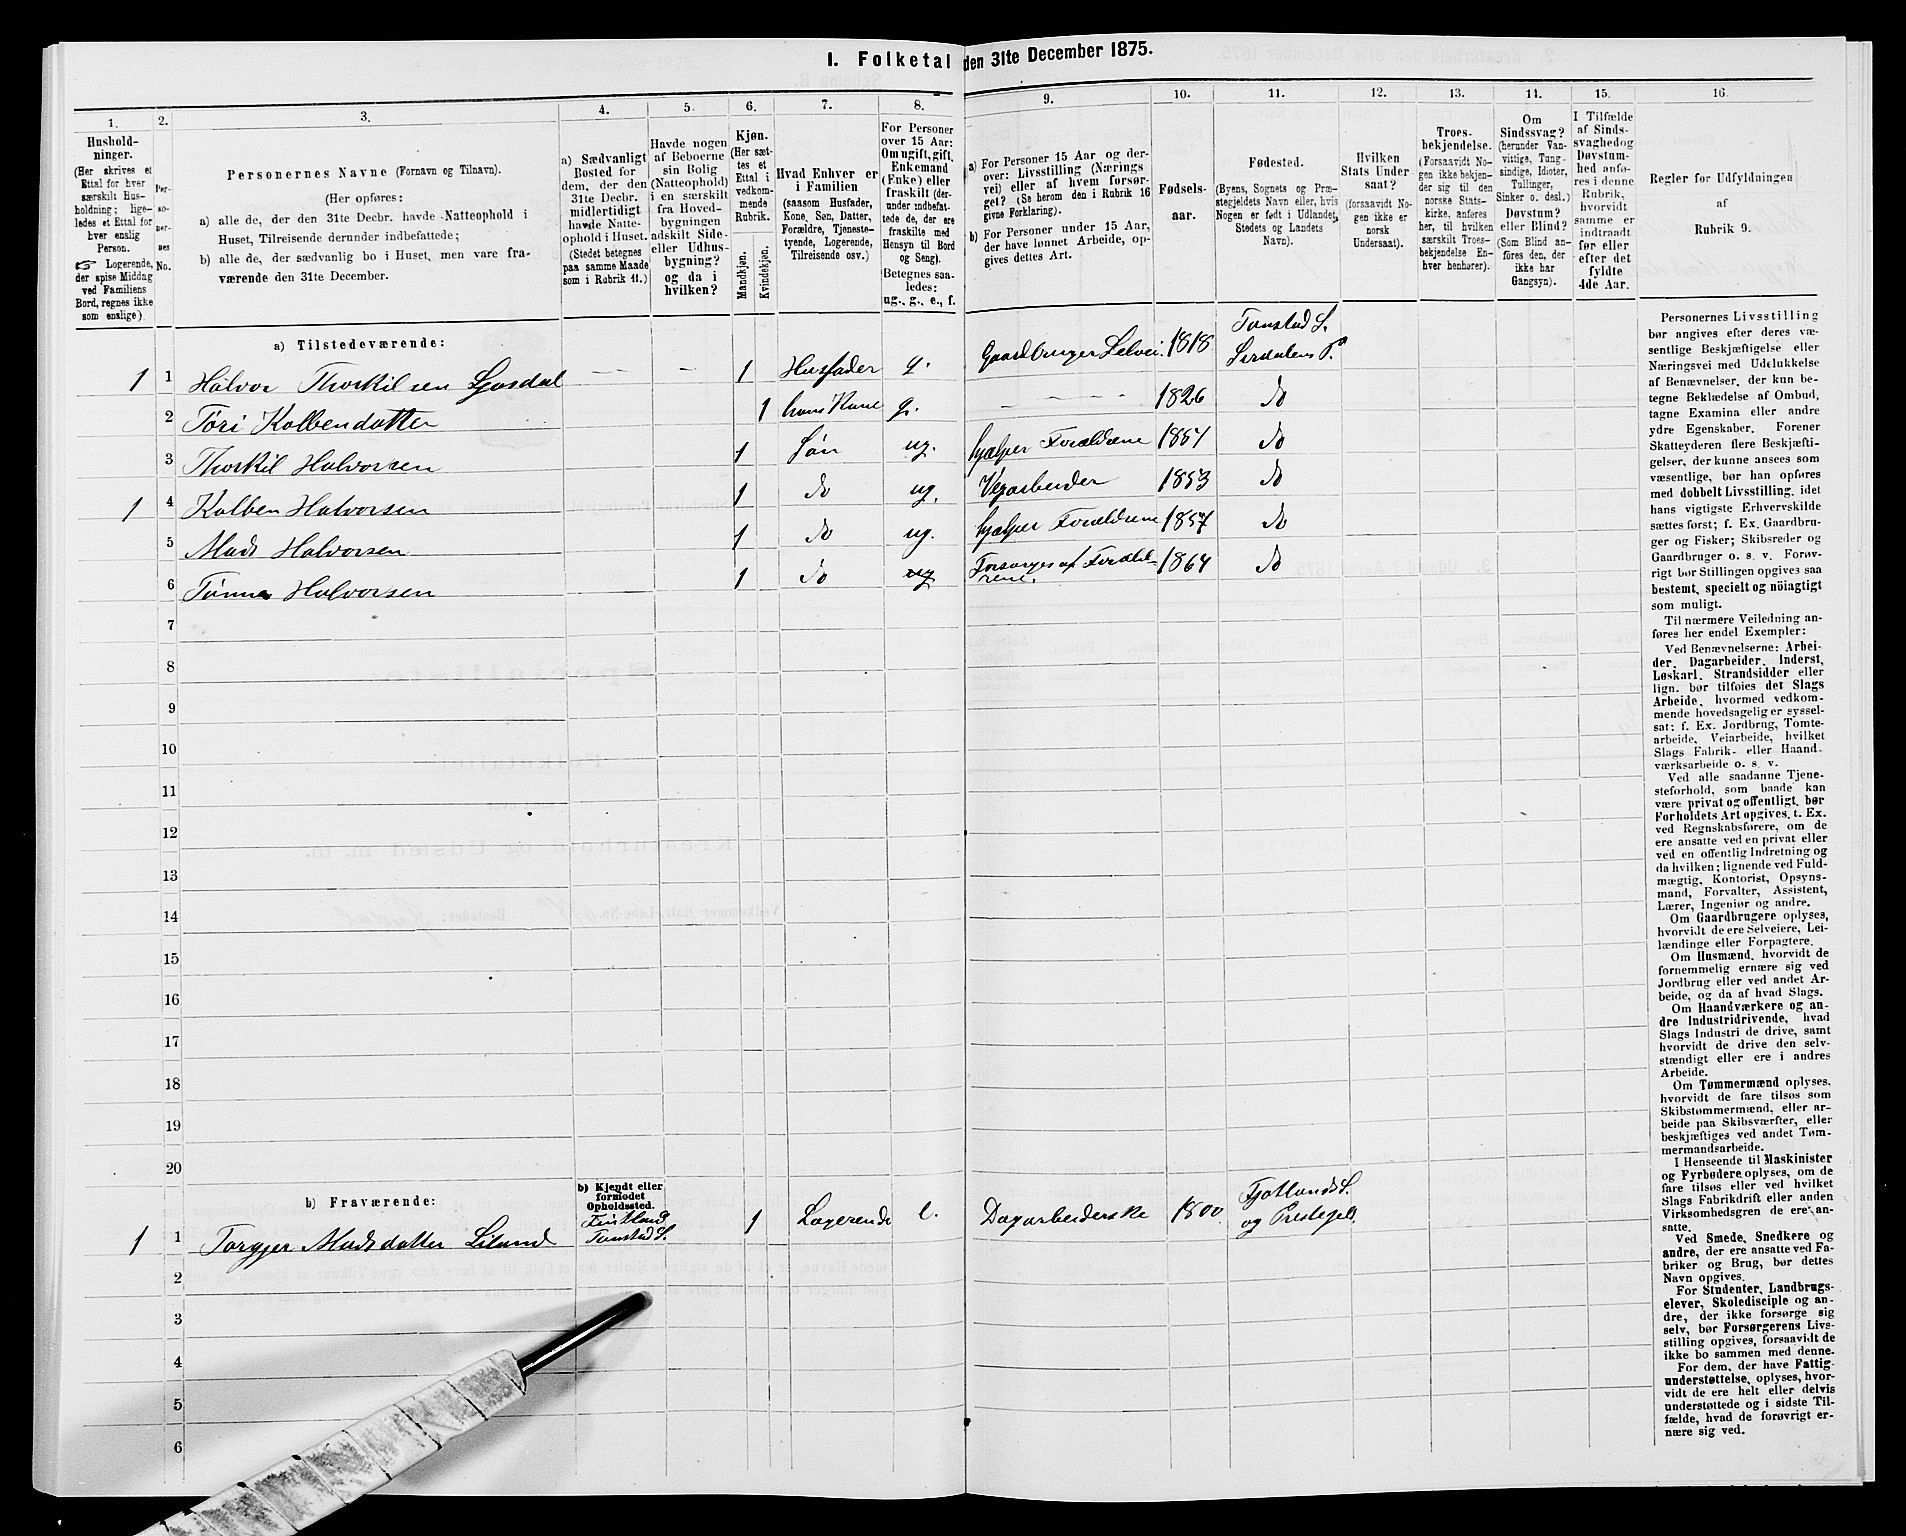 I. Folketal den 31te December 1875.
1. 2. 3. 4. 5. 6. 7. 8. 9. 10. 11. 12. 13. 11. 15. 16.
Hushold-
ninger.
(Her skrives et
Ettal for hver
særskilt Hus-
holdning; lige-
ledes et Ettal for
hver enslig
Person.
☞ Logerende,
der spise Middag
ved Familiens
Bord, regnes ikke
som enslige).
Per-
so-
ner-
nes
No.
Personernes Navne (Fornavn og Tilnavn).
(Her opføres:
a) alle de, der den 31te Decbr. havde Natteophold i
Huset, Tilreisende derunder indbefattede;
b) alle de, der sædvanlig bo i Huset, men vare fra-
værende den 31te December.
a) Sædvanligt
Bosted for
dem, der den
31te Decbr.
midlertidigt
havde Natte-
ophold i Huset.
(Stedet betegnes
paa samme Maade
som i Rubrik 11.)
Havde nogen
af Beboerne
sin Bolig
(Natteophold)
i en særskilt
fra Hoved-
bygningen
adskilt Side-
eller Udhus-
bygning?
og da i
hvilken?
Kjøn.
(Her sæt-
tes et
Ettal i
vedkom-
mende
Rubrik.
Mandkjøn.
Kvindekjøn.
Hvad Enhver er
i Familien
(saasom Husfader,
Kone, Søn, Datter,
Forældre, Tjeneste-
tyende, Logerende,
Tilreisende osv.)
For Personer
over 15 Aar:
Om ugift, gift,
Enkemand
(Enke) eller
fraskilt (der-
under indbefat-
tede de, der ere
fraskilte med
Hensyn til Bord
og Seng).
Betegnes saa-
ledes:
ug., g., e., f.
a) For Personer 15 Aar og der-
over: Livsstilling (Nærings
vei) eller af hvem forsør-
get? (Se herom den i Rubrik 16
givne Forklaring).
b) For Personer under 15 Aar,
der have lønnet Arbeide, op-
gives dettes Art.
Fødsels-
aar.
Fødested.
(Byens, Sognets og Præ-
stegjeldets Navn eller, hvis
Nogen er født i Udlandet,
Stedets og Landets
Navn).
Hvilken
Stats Under
saat?
(forsaavidt No-
gen ikke er
norsk
Undersaat).
Troes-
bekjendelse.
(Forsaavidt No-
gen ikke bekjen-
der sig til den
norske Stats-
kirke, anføres
her, til hvilken
særskilt Troes-
bekjendelse En-
hver henhører).
Om
Sindssvag?
(herunder Van-
vittige, Tung-
sindige, Idioter,
Tullinger,
Sinker o. desl.)
Døvstum?
eller Blind?
(Som Blind an-
føres den, der
ikke har
Gangsyn).
I Tilfælde
af Sinds-
svaghed og
Døvstum-
hed anfø-
res i denne
Rubrik,
hvorvidt
samme er
indtraadt
før eller
efter det
fyldte
4de Aar.
Regler for Udfyldningen
af
Rubrik 9.
a) Tilstedeværende:
1 1 Halvor Thorkilsen Josdal 1 Husfader g. Gaardbruger Selvei. 1818 Tonstad S. Sirdalens P.
2 Tøri Kolbendatter 1 hans Kone g. 1826 do
3 Thorkil Halvorsen 1 Søn ug. hjælper Forældrene 1851 do
1 4 Kolben Halvorsen 1 do ug. Veiarbeider 1853 do
5 Mads Halvorsen 1 do ug. hjælper Forældrene 1857 do
6 Tønnes Halvorsen 1 do ug Forsørges af Foræld-
rene. 1864 do
7
8
9
10
11
12
13
14
15
16
17
18
19
20
b) Fraværende:
b) Kjendt eller
formodet
Opholdssted.
1 1 Torgjer Madsdatter Liland Tonstad S. 1 Logerende e. Dagarbeiderske 1800 Fjotlands S.
og Prestegjeld.
2
3
4
5
6
Personernes Livsstilling
bør angives efter deres væ-
sentlige Beskjæftigelse eller
Næringsvei med Udelukkelse
af Benævnelser, der kun be-
tegne Beklædelse af Ombud,
tagne Examina eller andre
ydre Egenskaber. Forener
Skatteyderen flere Beskjæfti-
gelser, der kunne ansees som
væsentlige, bør han opføres
med dobbelt Livsstilling, idet
hans vigtigste Erhvervskilde
sættes først; f. Ex. Gaardbru-
ger og Fisker; Skibsreder og
Gaardbruger o. s. v. Forøv-
rigt bør Stillingen opgives saa
bestemt, specielt og nöiagtigt
som muligt.
Til nærmere Veiledning an-
føres her endel Exempler:
Ved Benævnelserne: Arbei-
der, Dagarbeider, Inderst,
Løskarl, Strandsidder eller
lign. bør tilføies det Slags
Arbeide, hvormed vedkom-
mende hovedsagelig er syssel-
sat; f. Ex. Jordbrug, Tomte-
arbeide, Veiarbeide, hvilket
Slags Fabrik- eller Haand-
værksarbeide o. s. v.
Ved alle saadanne Tjene-
steforhold, som baade kan
være privat og offentligt, bør
Forholdets Art opgives, t. Ex.
ved Regnskabsførere, om de
ere ansatte ved en privat eller
ved en offentlig Indretning og
da hvilken; lignende ved Fuld-
mægtig, Kontorist, Opsyns-
mand, Forvalter, Assistent,
Lærer, Ingeniør og andre.
Om Gaardbrugere oplyses,
hvorvidt de ere Selveiere, Lei-
lændinge eller Forpagtere.
Om Husmænd, hvorvidt de
fornemmelig ernære sig ved
Jordbrug eller ved andet Ar-
beide, og da af hvad Slags.
Om Haandværkere og an-
dre Industridrivende, hvad
Slags Industri de drive, samt
hvorvidt de drive den selv-
stændigt eller ere i andres
Arbeide.
Om Tømmermænd oplyses,
hvorvidt de fare tilsøs som
Skibstømmermænd, eller ar-
beide paa Skibsværfter, eller
beskjæftiges ved andet Tøm-
mermandsarbeide.
I Henseende til Maskinister
og Fyrbødere oplyses, om de
fare tilsøs eller ved hvilket
Slags Fabrikdrift eller anden
Virksomhedsgren de ere an-
satte.
Ved Smede, Snedkere og
andre, der ere ansatte ved Fa-
briker og Brug, bør dettes
Navn opgives.
For Studenter, Landbrugs-
elever, Skoledisciple og an-
dre, der ikke forsørge sig
selv, bør Forsørgerens Livs-
stilling opgives, forsaavidt de
ikke bo sammen med denne.
For dem, der have Fattig-
understøttelse, oplyses, hvor-
vidt de ere helt eller delvis
understøttede og i sidste Til-
fælde, hvad de forøvrigt er-
nære sig ved.